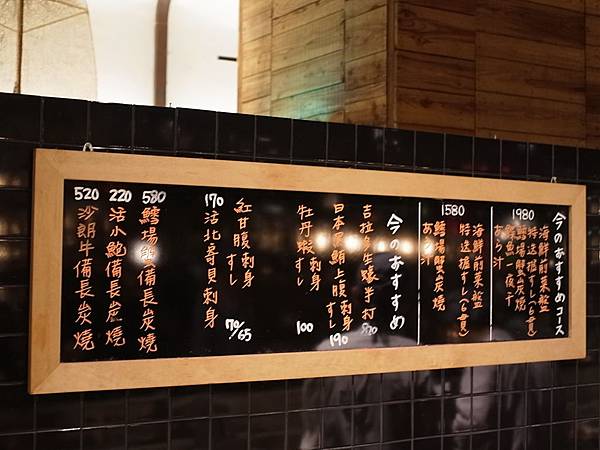 今のおすすめコース
1980
海鮮前菜盤
特送握すし(6貫)
鱈場蟹炭燒
鮭魚一夜干
あら汁
1580
海鮮前菜盤
特送握すし(6貫)
鱈場蟹炭燒
あら汁
今のおすすめ
吉拉多生蠔手打 820
日本黑鮪上腹刺身
すし 190
牡丹蝦刺身
すし 100
紅甘腹刺身 170
すし 65
170 活北寄貝刺身
580 鱈場蟹備長炭燒
220 活小鮑備長炭燒
520 沙朗牛備長炭燒